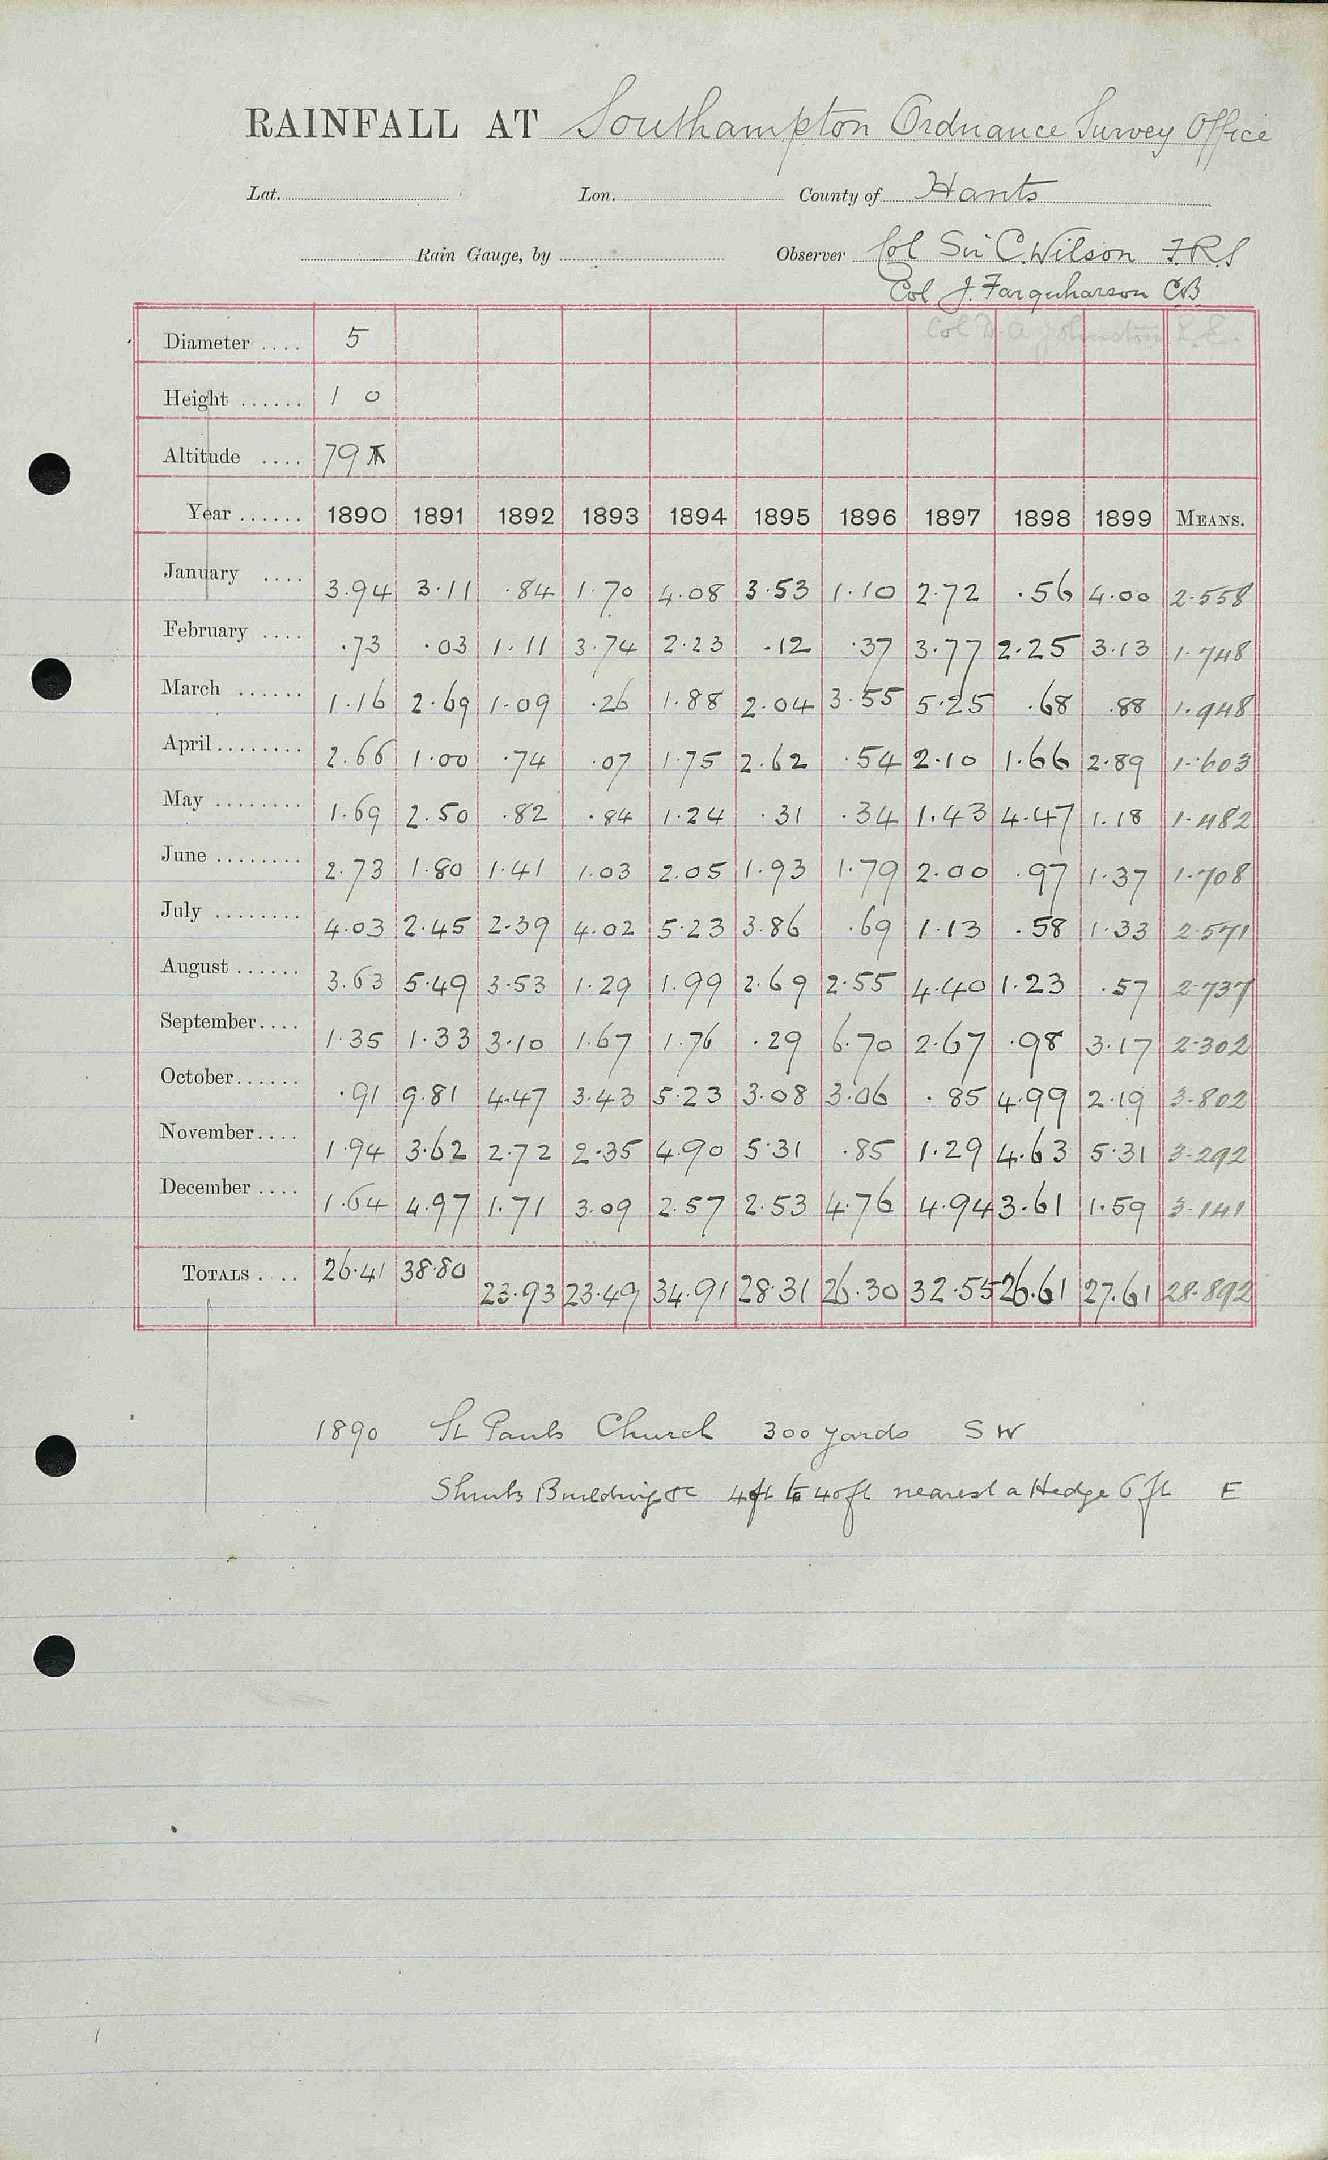 RAINFALL AT Southampton Ordnance Survey Office
Lat. Lon. County of Hants
Rain Gauge, by Observer Col Sir C. Wilson F.R.S
Col J. Farquharson CB
Col D. A. Johnston R.E.
Diameter .... 5
Height ...... 1 0
Altitude .... 79
Year ...... 1890 1891 1892 1893 1894 1895 1896 1897 1898 1899 MEANS.
January .... 3.94 3.11 .84 1.70 4.08 3.53 1.10 2.72 .56 4.00 2.558
February .... .73 .03 1.11 3.74 2.23 .12 .37 3.77 2.25 3.13 1.748
March ...... 1.16 2.69 1.09 .26 1.88 2.04 3.55 5.25 .68 .88 1.948
April ........ 2.66 1.00 .74 .07 1.75 2.62 .54 2.10 1.66 2.89 1.603
May ........ 1.69 2.50 .82 .84 1.24 .31 .34 1.43 4.47 1.18 1.482
June ........ 2.73 1.80 1.41 1.03 2.05 1.93 1.79 2.00 .97 1.37 1.708
July ........ 4.03 2.45 2.39 4.02 5.23 3.86 .69 1.13 .58 1.33 2.571
August ...... 3.63 5.49 3.53 1.29 1.99 2.69 2.55 4.40 1.23 .57 2.737
September .... 1.35 1.33 3.10 1.67 1.76 .29 6.70 2.67 .98 3.17 2.302
October ...... .91 9.81 4.47 3.43 5.23 3.08 3.06 .85 4.99 2.19 3.802
November .... 1.94 3.62 2.72 2.35 4.90 5.31 .85 1.29 4.63 5.31 3.292
December .... 1.64 4.97 1.71 3.09 2.57 2.53 4.76 4.94 3.61 1.59 3.141
TOTALS .... 26.41 38.80 23.93 23.49 34.91 28.31 26.30 32.55 26.61 27.61 28.892
1890 St Pauls Church 300 yards S W
Shrubs Buildings &c 4ft to 40ft nearest a Hedge 6 ft E